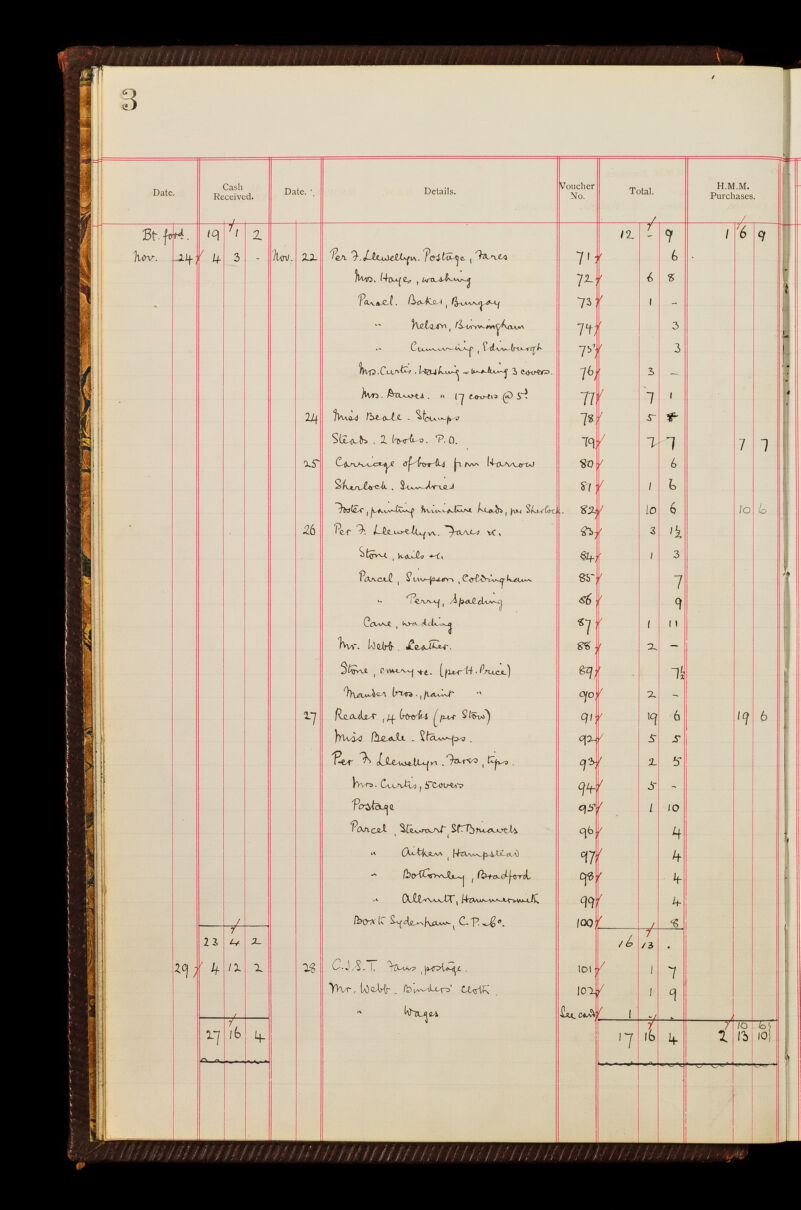 3
Date. Cash Received. Date. Details. Voucher No. Total. H.M.M. Purchases.
Bt. ford. 19 1 2 12 - 9 1 6 9
Nov. 24 4 3 - Nov. 22 Per F. Llewellyn. Postage, Fares 71 6
Mrs. Hayes, washing 72 6 8
Parcel. Baker, Bungay 73 1 -
" Nelson, Birmingham 74 3
" Cumming, Edinburgh 75 3
Mrs. Curtis. Washing & making 3 covers. 76 3 -
Mrs. Dawes. " 17 covers @ 5d 77 7 1
24 Miss Beale. Stamps 78 5
Steabs. 2 books. P.O. 79 7 7 7 7
25 Carriage of books from Harrow 80 6
Sherlock. Sundries 81 1 6
Foster, painting miniature heads, per Sherlock. 82 10 6 10 6
26 Per F. Llewellyn. Fares &c. 83 3 1½
Stone, nails &c. 84 1 3
Parcel, Simpson, Coldringham 85 7
" Perry, Spalding 86 9
Cane, wadding 87 1 11
Mr. Webb. Leather. 88 2 -
Stone, emery &c. (per H. Price) 89 7½
Mander bros., paint " 90 2 -
27 Reader, 4 books (per Stow) 91 19 6 19 6
Miss Beale. Stamps. 92 5 5
Per F. Llewellyn. Fares, tips. 93 2 5
Mrs. Curtis, 5 covers 94 5 -
Postage 95 1 10
Parcel, Stewart, St. Briavels 96 4
" Aitken, Hampstead 97 4
" Bottomley, Bradford 98 4
" Allnutt, Hammersmith 99 4
Box to Sydenham, C.P. & Co. 100 8
23 4 2 16 13 .
29 4 12 2 28 C.J.S.T. Fares, postage. 101 1 7
Mr. Webb. Binders' cloth. 102 1 9
" Wages See card 1 - .
27 16 4 17 16 4 2 13 10
10 6